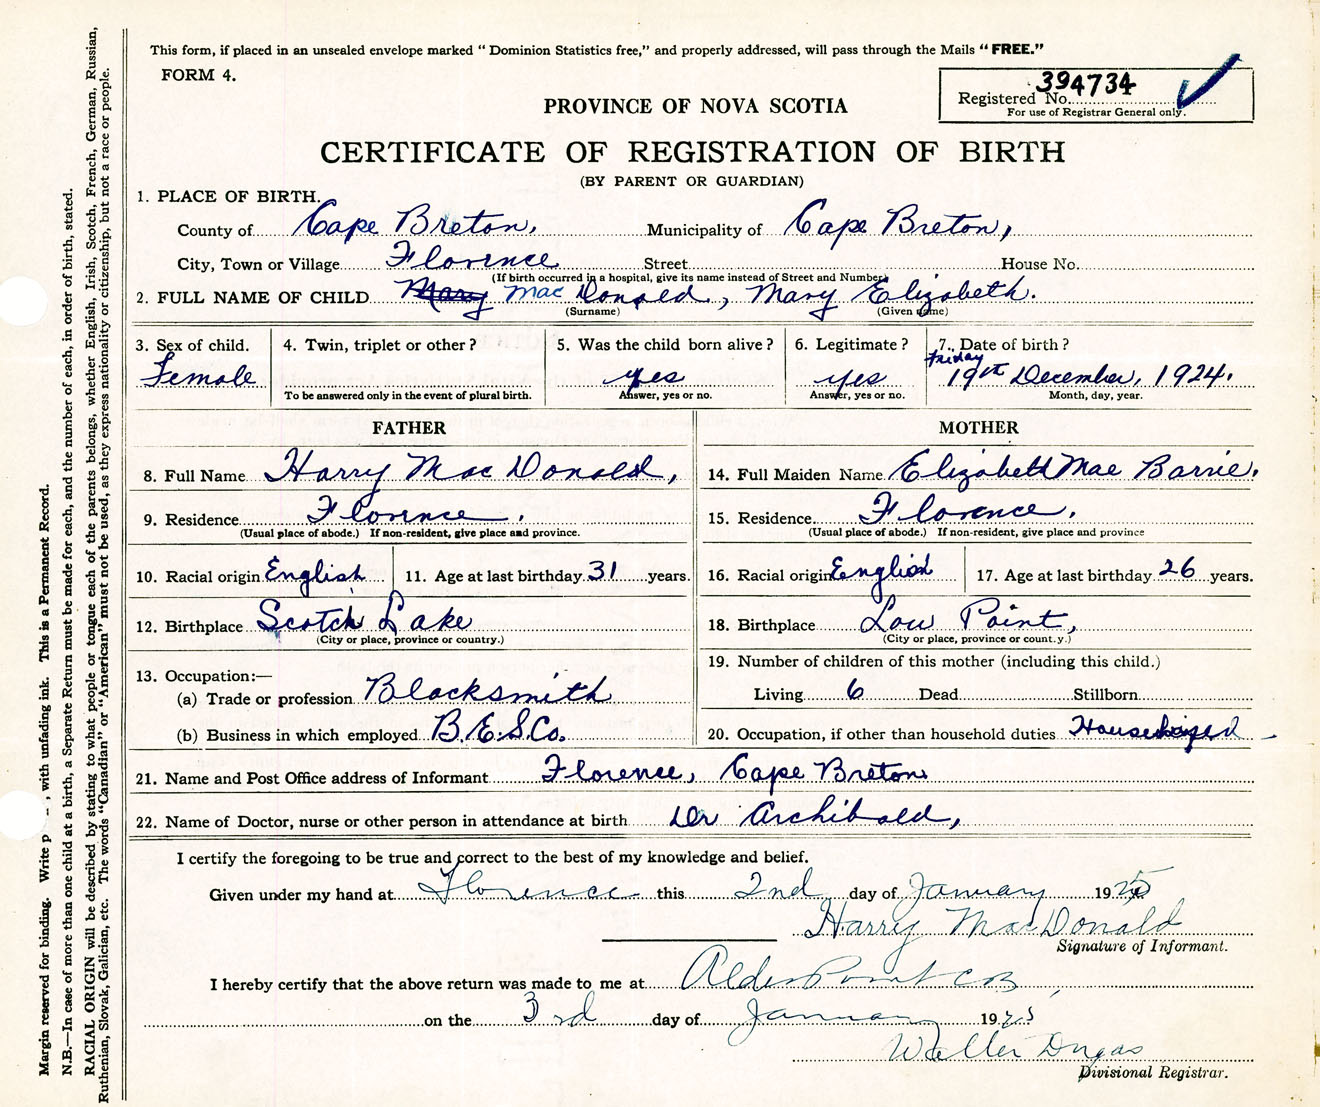 This form, if placed in an unsealed envelope marked “ Dominion Statistics free,” and properly addressed, will pass through the Mails “ FREE.”
FORM 4.
394734
Registered No.
For use of Registrar General only.
PROVINCE OF NOVA SCOTIA
CERTIFICATE OF REGISTRATION OF BIRTH
(BY PARENT OR GUARDIAN)
1. PLACE OF BIRTH.
County of Cape Breton, Municipality of Cape Breton,
City, Town or Village Florence Street House No.
(If birth occurred in a hospital, give its name instead of Street and Number)
2. FULL NAME OF CHILD Mary Mac Donald, Mary Elizabeth.
(Surname) (Given name)
3. Sex of child. 4. Twin, triplet or other ? 5. Was the child born alive ? 6. Legitimate ? 7. Date of birth ?
Female yes yes Friday 19th December, 1924.
To be answered only in the event of plural birth. Answer, yes or no. Answer, yes or no. Month, day, year.
FATHER MOTHER
8. Full Name Harry Mac Donald, 14. Full Maiden Name Elizabeth Mae Barrie.
9. Residence Florence. 15. Residence Florence.
(Usual place of abode.) If non-resident, give place and province. (Usual place of abode.) If non-resident, give place and province
10. Racial origin English 11. Age at last birthday 31 years. 16. Racial origin English 17. Age at last birthday 26 years.
12. Birthplace Scotch Lake 18. Birthplace Low Point,
(City or place, province or country.) (City or place, province or count.y.)
19. Number of children of this mother (including this child.)
13. Occupation:—
(a) Trade or profession Blacksmith Living 6 Dead Stillborn
(b) Business in which employed B.E.S.Co. 20. Occupation, if other than household duties
21. Name and Post Office address of Informant Florence, Cape Breton
22. Name of Doctor, nurse or other person in attendance at birth Dr Archibald,
I certify the foregoing to be true and correct to the best of my knowledge and belief.
Given under my hand at Florence this 2nd day of January 1925
Harry MacDonald
Signature of Informant.
I hereby certify that the above return was made to me at Alder Point CB,
on the 3rd day of January 1925
Walter Dugas
Divisional Registrar.
Margin reserved for binding. Write , with unfading ink. This is a Permanent Record.
N.B.—In case of more than one child at a birth, a Separate Return must be made for each, and the number of each, in order of birth, stated.
RACIAL ORIGIN will be described by stating to what people or tongue each of the parents belongs, whether English, Irish, Scotch, French, German, Russian,
Ruthenian, Slovak, Galician, etc. The words “Canadian” or “American” must not be used, as they express nationality or citizenship, but not a race or people.